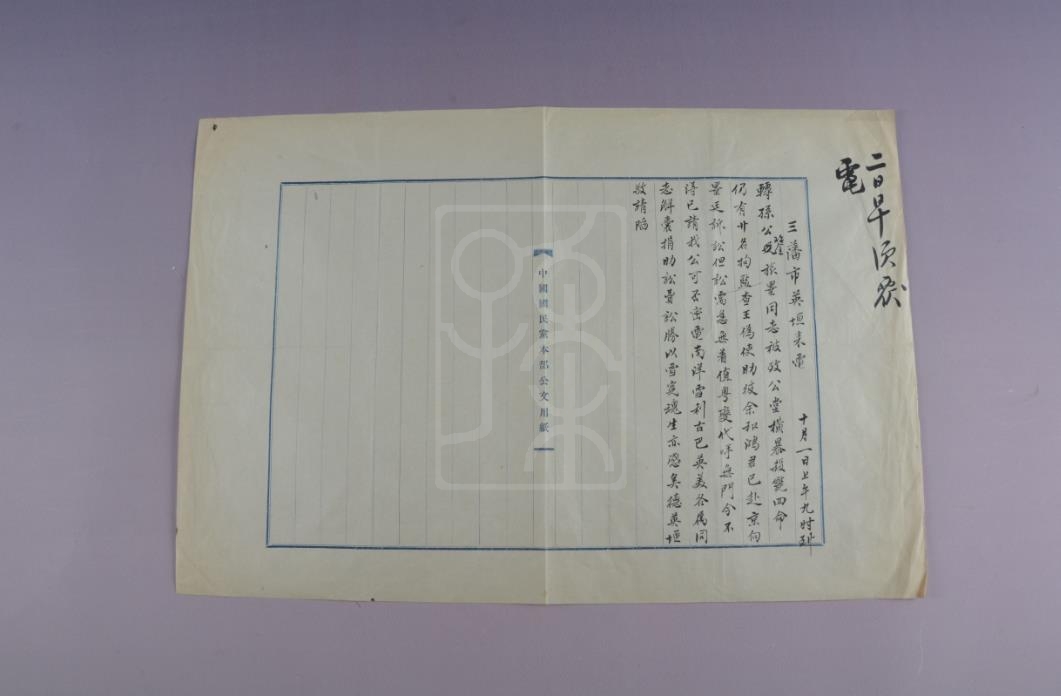 二日早
電
三藩市英垣来電
十月一日上午九時到
轉孫公鑒旅墨同志被致公堂橫暴殺斃四命
仍有廿名拘監查王偽使助彼余和鴻君已赴京向
墨廷訴訟但訟需甚無着值粵變代呼無門今不
得已請我公可否密電南洋雪利古巴英美各属同
志解囊捐助訟費訟勝以雪冤魂生亦感矣德英垣
敬請
中國國民黨本部公文用紙